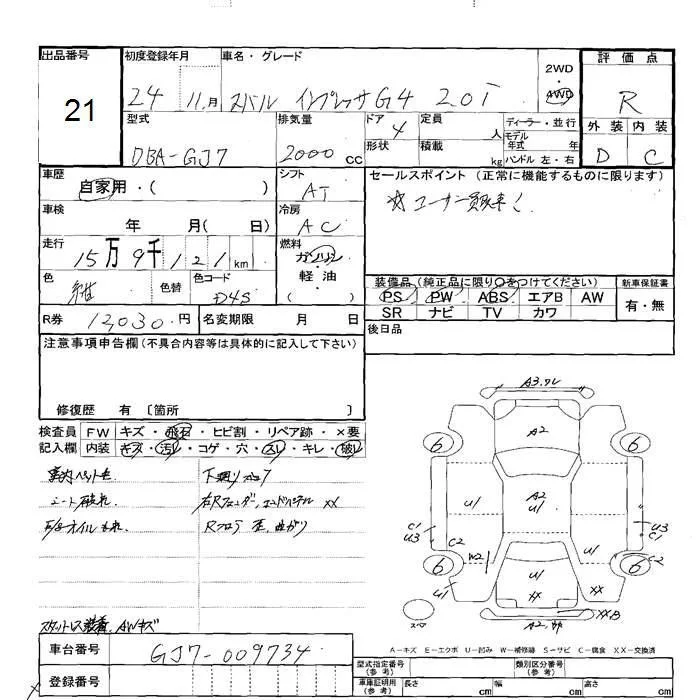 出品番号
21
初度登録年月
24 11月
車名・グレード
スバル インプレッサG4 2.0i
2WD
・
4WD
評価点
R
外装 内装
D C
型式
DBA-GJ7
排気量
2000 cc
ドア
4
形状
定員
人
積載
kg
ディーラー・並行
モデル年式 年
ハンドル 左・右
車歴
自家用・( )
シフト
AT
車検
年 月( 日)
冷房
AC
走行
15万9千121km
燃料
ガソリン
・
軽油
( )
色
紺
色替
色コード
D4S
R券 12,030円
名変期限 月 日
セールスポイント (正常に機能するものに限ります)
☆ユーザー買取車!
装備品(純正品に限り○をつけてください)
PS PW ABS エアB AW
SR ナビ TV カワ
新車保証書
有・無
後日品
注意事項申告欄(不具合内容等は具体的に記入して下さい)
修復歴 有 〔箇所 〕
検査員記入欄
FW キズ・飛石・ヒビ割・リペア跡・×要
内装 キズ・汚レ・コゲ・穴・スレ・キレ・破レ
車内ペット毛
シート破れ
オイルもれ
下廻り
右Rフェンダー、エンドパネル XX
Rフロア 歪、曲がり
スタットレス装着、AWキズ
A3.ワレ
A2
A2
U1
6
6
6
6
U1
U1
C1
U3
C2
W2
U1
U3
C1
C2
U1
XX
XX
XX
A2.
スペ
A－キズ E－エクボ U－凹み W－補修跡 S－サビ C－腐食 XX－交換済
車台番号
GJ7-009734
登録番号
型式指定番号
(参考)
類別区分番号
(参考)
車庫証明用
(参考)
長さ cm
幅 cm
高さ cm